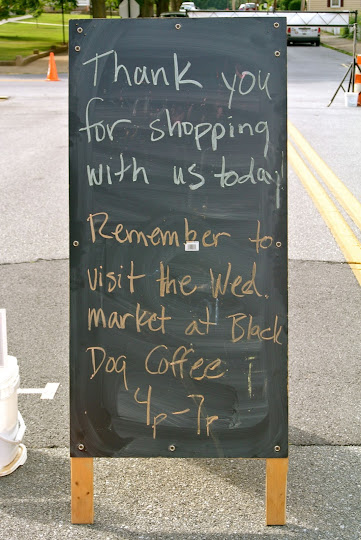 Thank you
for shopping
with us today!
Remember to
visit the Wed.
market at Black
Dog Coffee
4p-7p